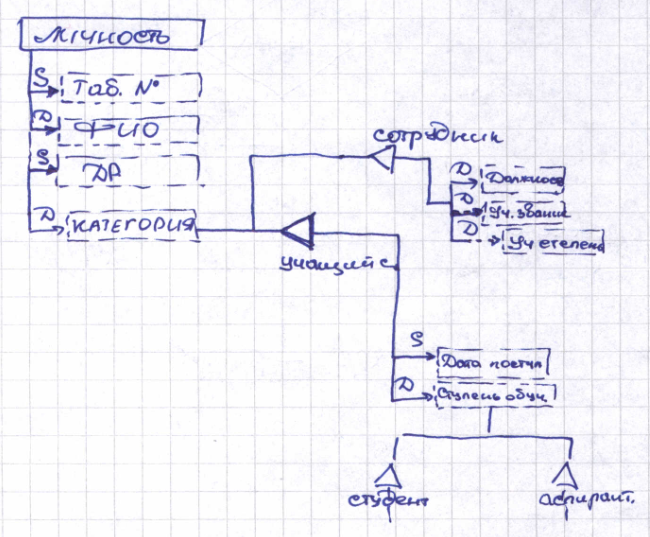 ЛИЧНОСТЬ
S
Таб. №
D
ФИО
S
ДР
D
КАТЕГОРИЯ
сотрудник
D
Должнос
D
Уч. звании
D
Уч степень
учащийс
S
Дата поступ
D
Ступень обуч
студент
аспирант.